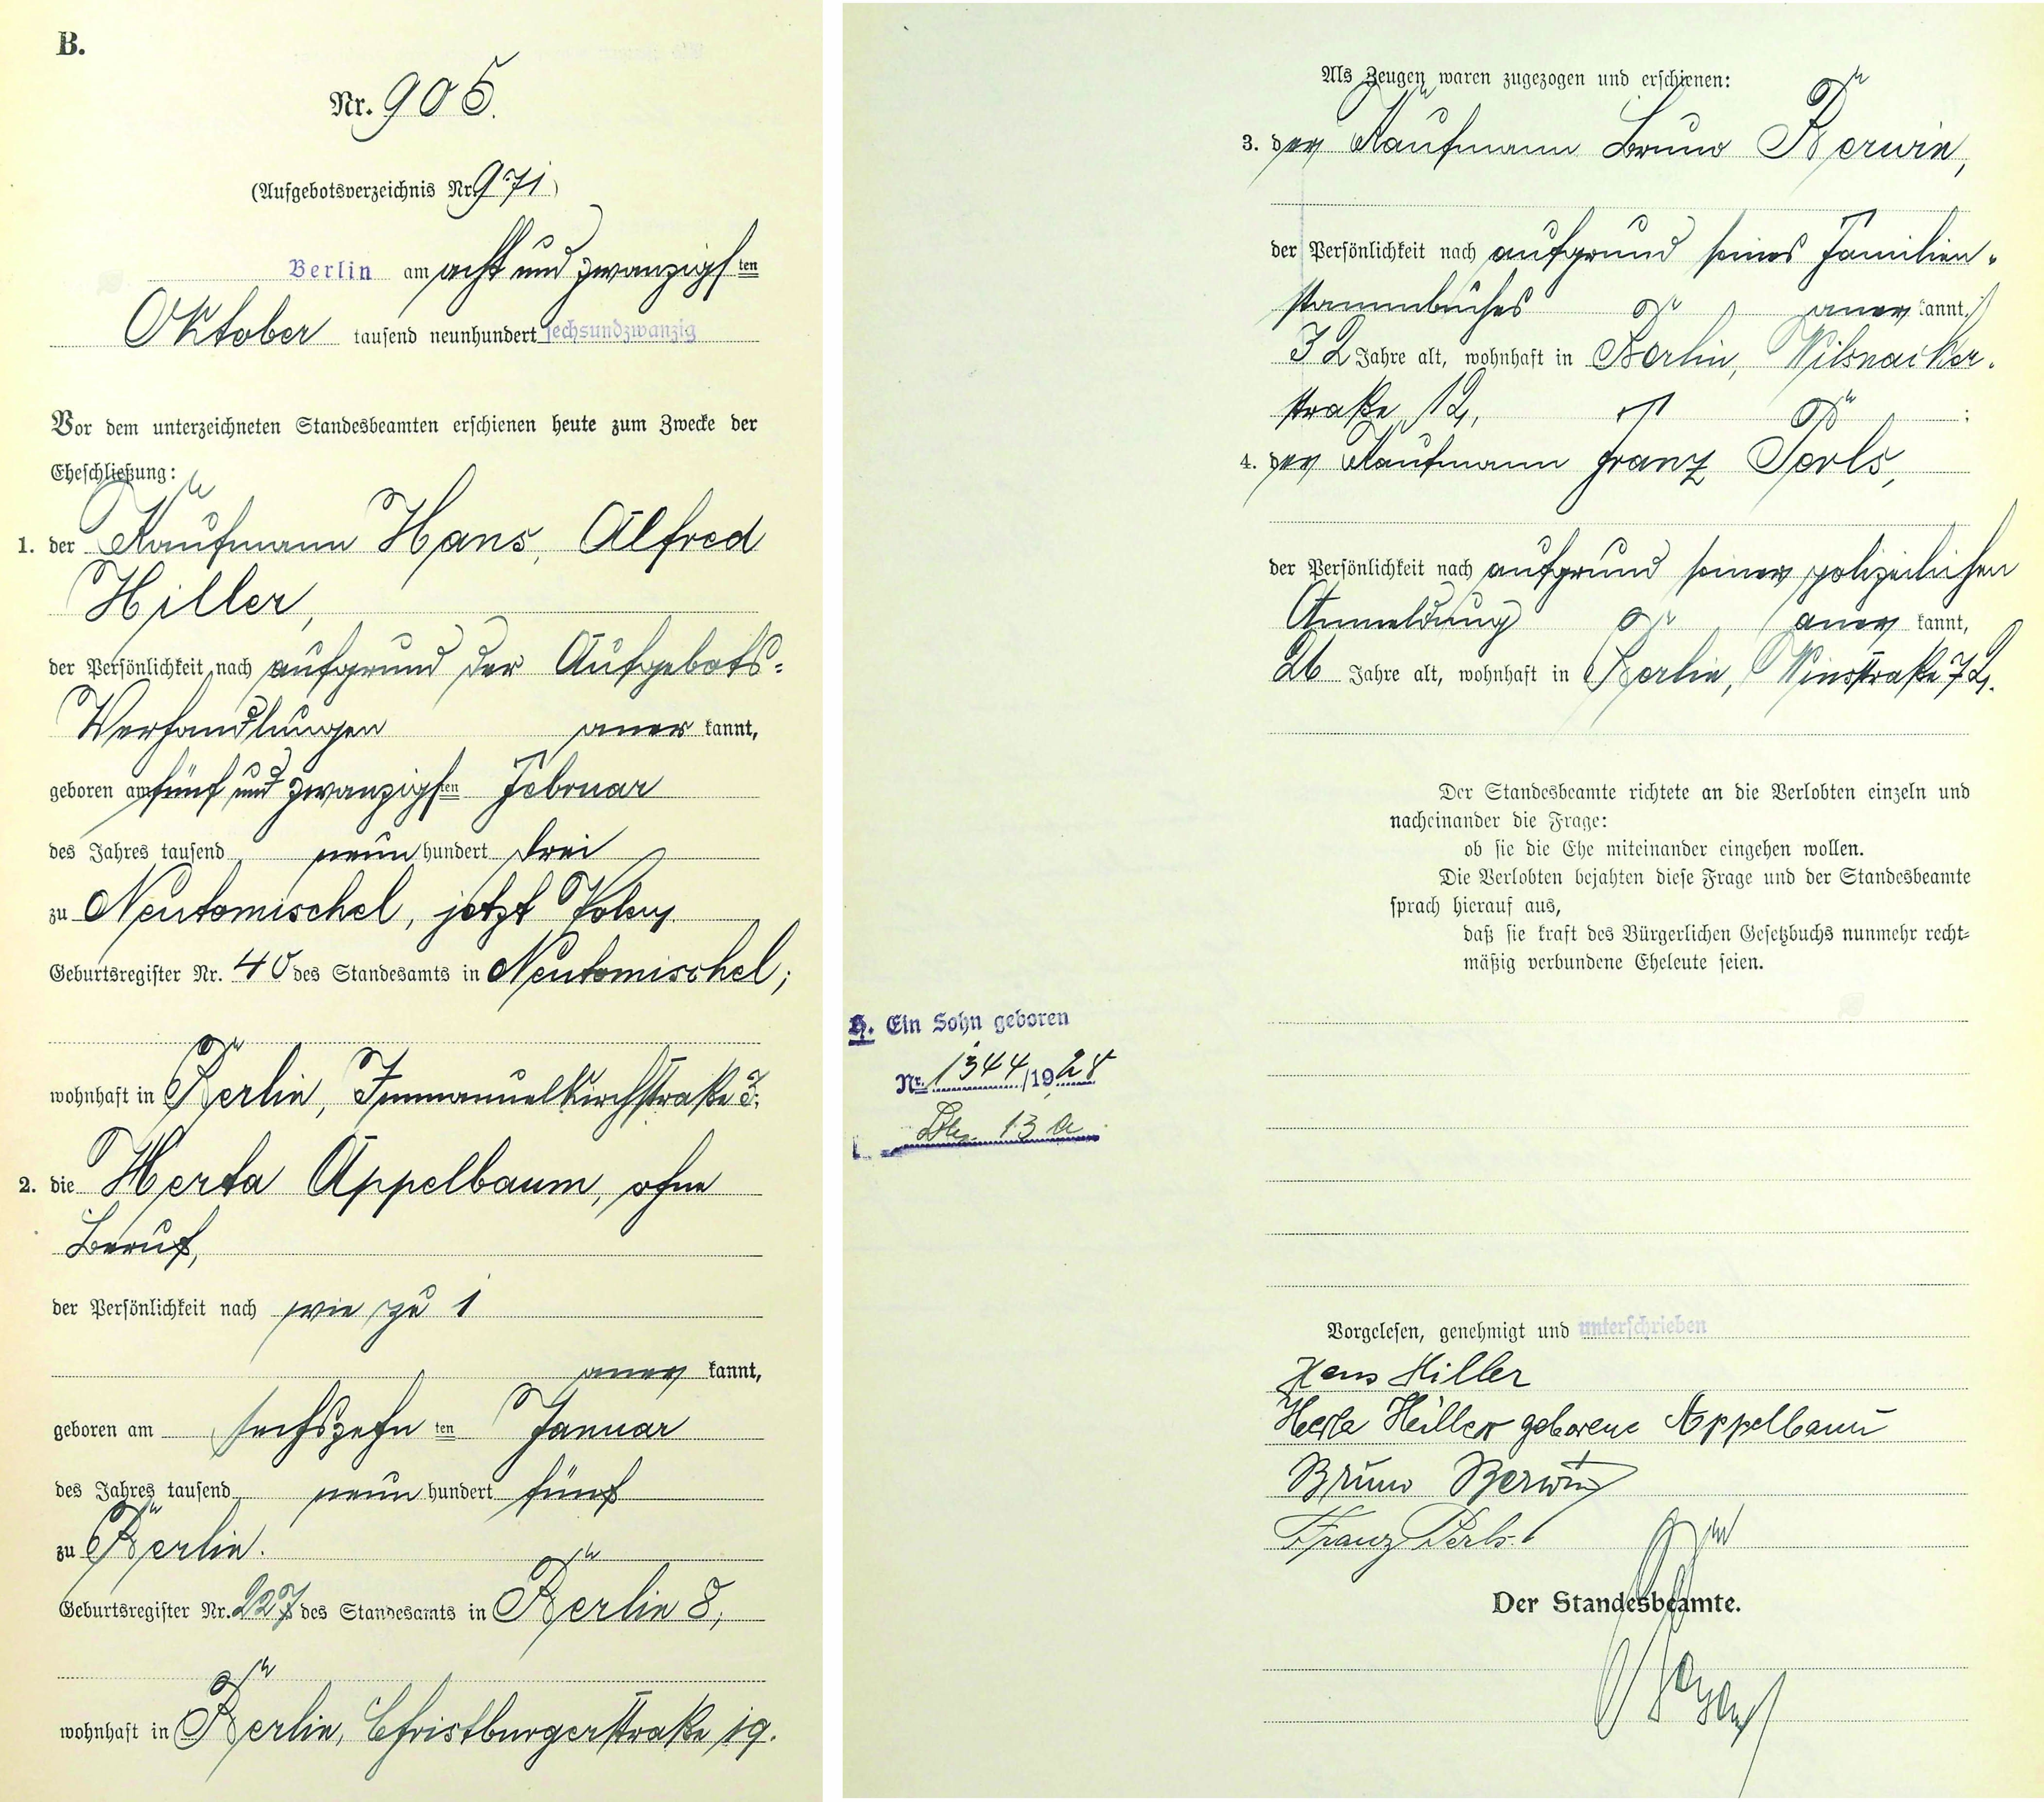 B.
Nr. 905.
(Aufgebotsverzeichnis Nr. 971)
Berlin am acht und zwanzigsten
Oktober tausend neunhundert sechsundzwanzig
Vor dem unterzeichneten Standesbeamten erschienen heute zum Zwecke der
Eheschließung:
1. der Kaufmann Hans, Alfred
Hiller,
der Persönlichkeit nach aufgrund der Aufgebots-
Verhandlungen anerkannt,
geboren am fünf und zwanzigsten Februar
des Jahres tausend neunhundert drei
zu Neutomischel, jetzt Polen.
Geburtsregister Nr. 40 des Standesamts in Neutomischel;
wohnhaft in Berlin, Immanuelkirchstraße 3;
2. die Herta Appelbaum, ohne
Beruf,
der Persönlichkeit nach wie zu 1
anerkannt,
geboren am sechszehnten Januar
des Jahres tausend neunhundert fünf
zu Berlin.
Geburtsregister Nr. 227 des Standesamts in Berlin 8,
wohnhaft in Berlin, Christburgerstraße 19.
Als Zeugen waren zugezogen und erschienen:
3. der Kaufmann Bruno Berwin,
der Persönlichkeit nach aufgrund seines Familien-
stammbuches anerkannt,
32 Jahre alt, wohnhaft in Berlin, Wilsnacker-
straße 12, ;
4. der Kaufmann Franz Perls,
der Persönlichkeit nach aufgrund seiner polizeilichen
Anmeldung anerkannt,
26 Jahre alt, wohnhaft in Berlin, Winsstraße 72.
Der Standesbeamte richtete an die Verlobten einzeln und
nacheinander die Frage:
ob sie die Ehe miteinander eingehen wollen.
Die Verlobten bejahten diese Frage und der Standesbeamte
sprach hierauf aus,
daß sie kraft des Bürgerlichen Gesetzbuchs nunmehr recht-
mäßig verbundene Eheleute seien.
H. Ein Sohn geboren
Nr. 1344/1928
13 a
Vorgelesen, genehmigt und unterschrieben
Hans Hiller
Herta Hiller geborene Appelbaum
Bruno Berwin
Franz Perls.
Der Standesbeamte.